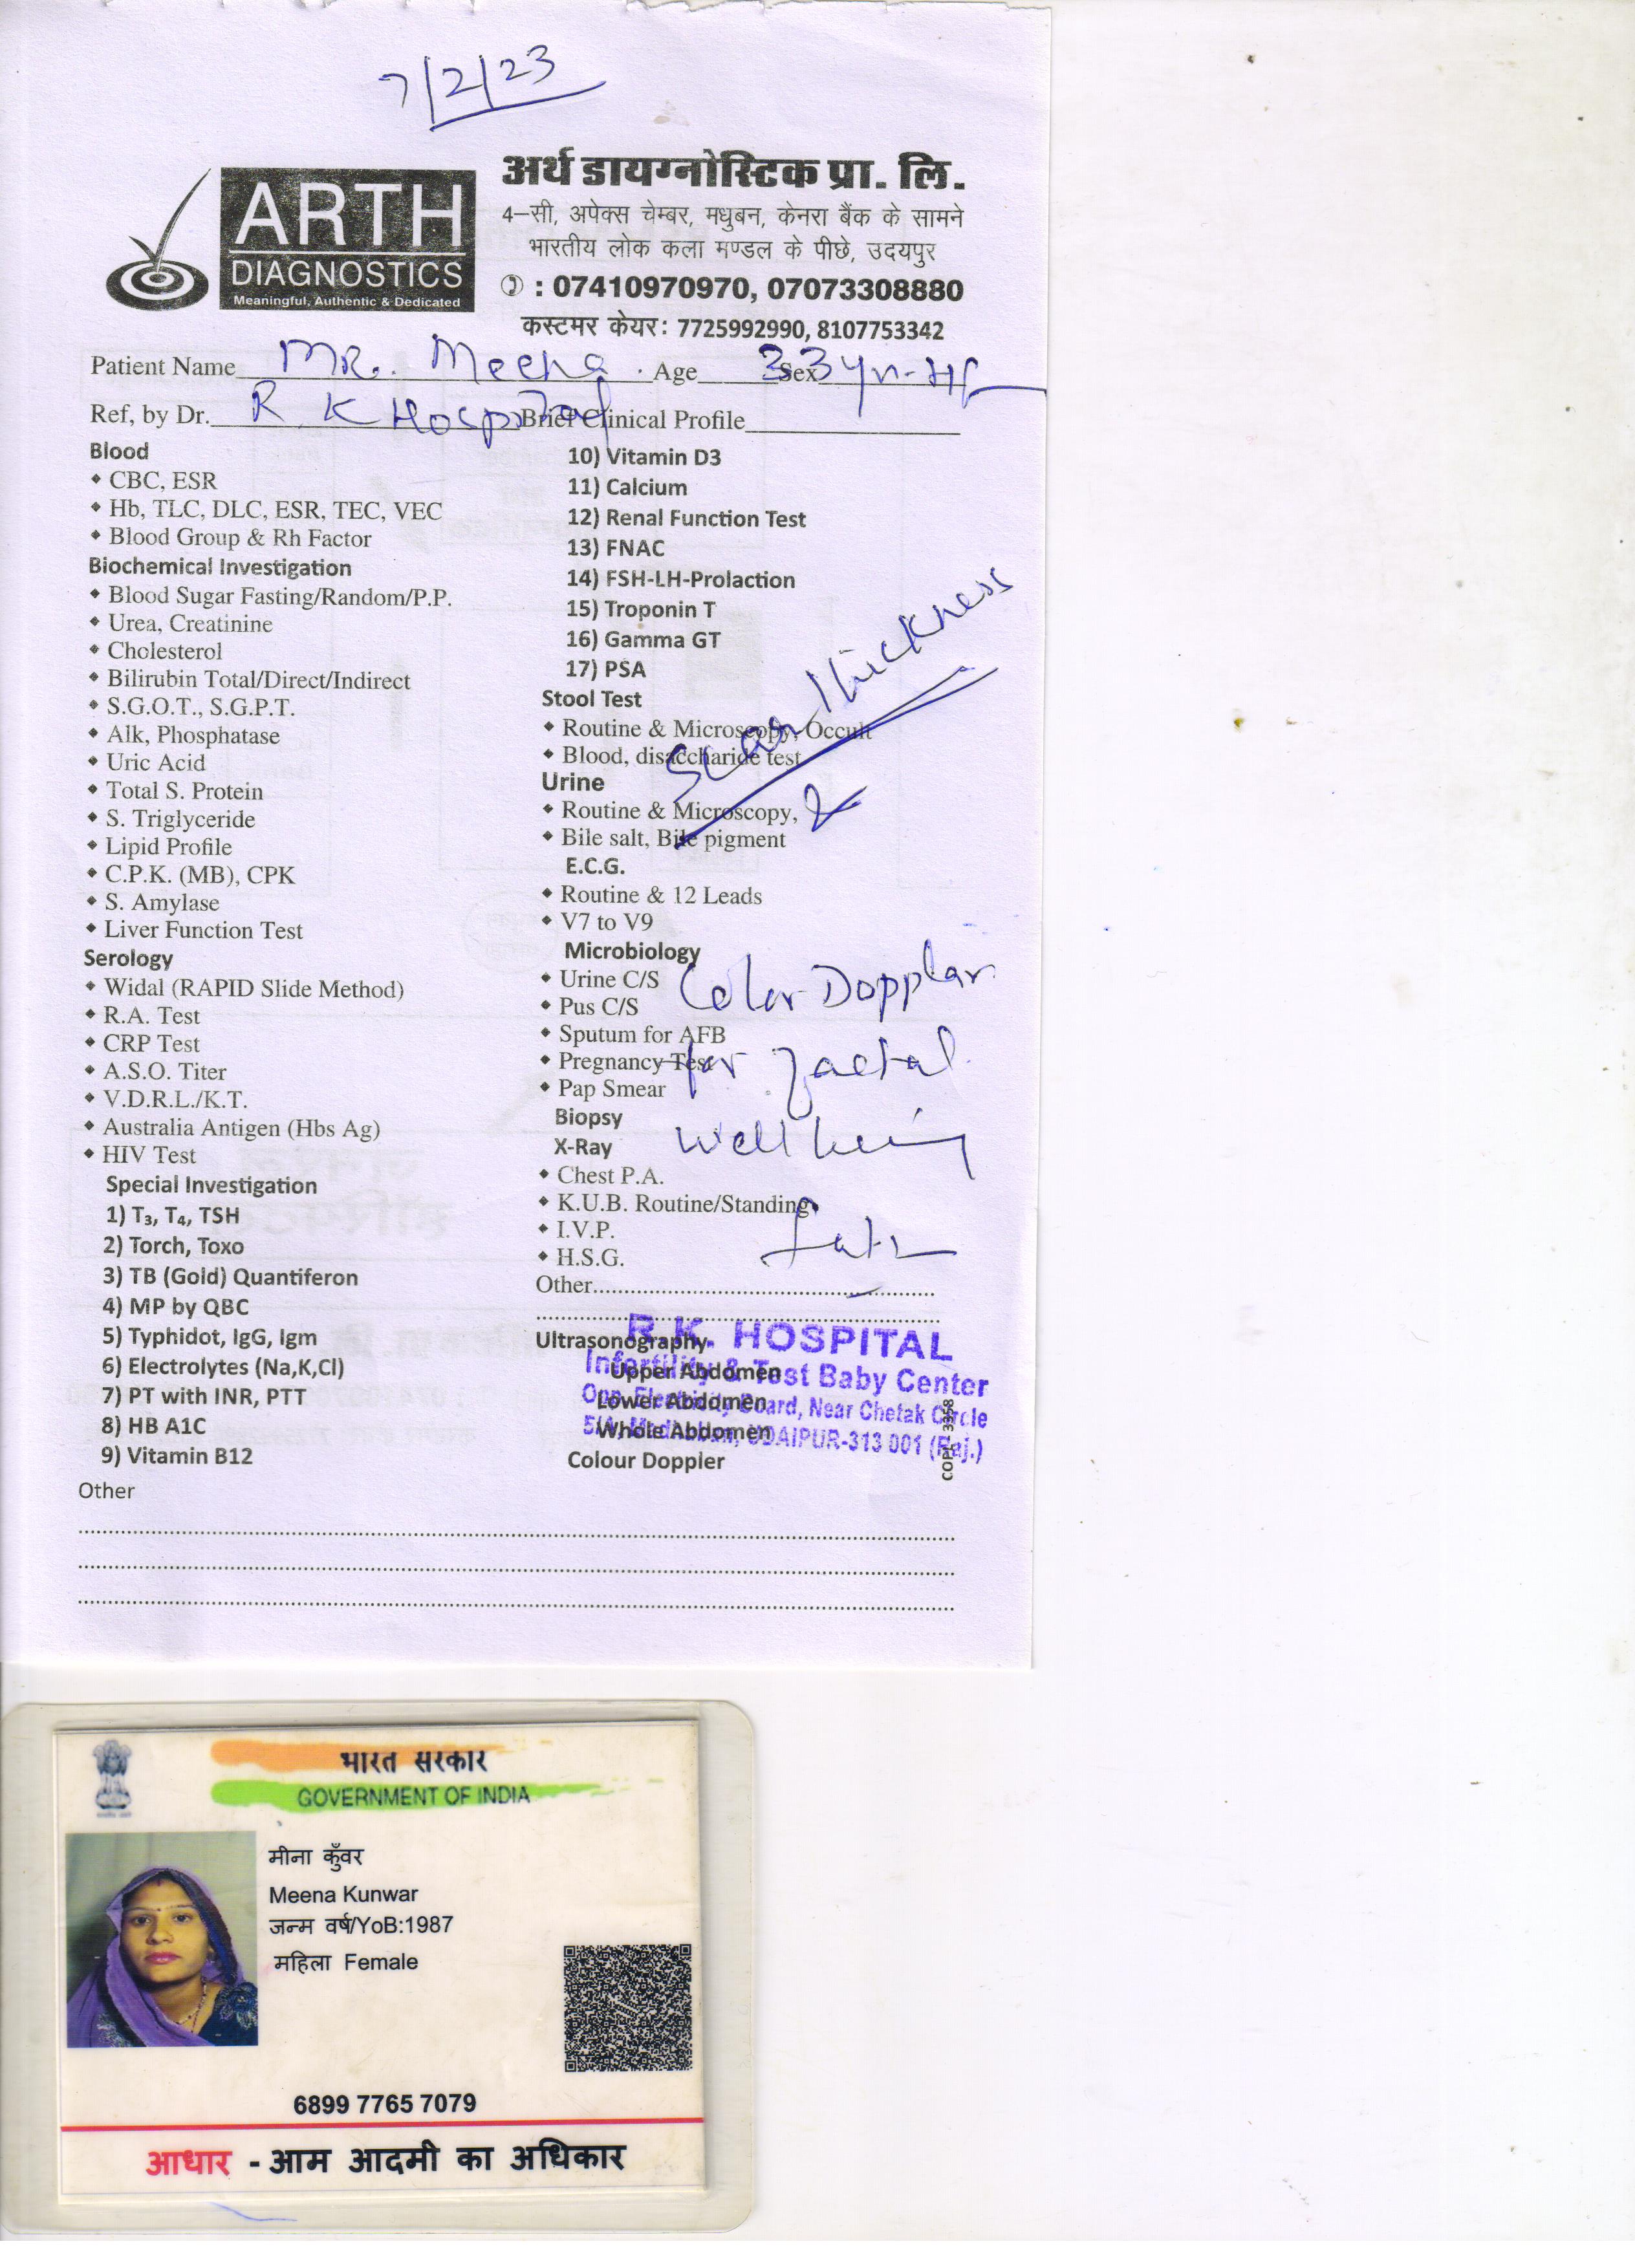 7/2/23
ARTH
DIAGNOSTICS
Meaningful, Authentic & Dedicated
अर्थ डायग्नोस्टिक प्रा. लि.
4-सी, अपेक्स चेम्बर, मधुबन, केनरा बैंक के सामने
भारतीय लोक कला मण्डल के पीछे, उदयपुर
: 07410970970, 07073308880
कस्टमर केयर: 7725992990, 8107753342
Patient Name MR. Meena Age 33 yr Sex
Ref, by Dr. R K Hospital Brief Clinical Profile
Blood
CBC, ESR
Hb, TLC, DLC, ESR, TEC, VEC
Blood Group & Rh Factor
Biochemical Investigation
Blood Sugar Fasting/Random/P.P.
Urea, Creatinine
Cholesterol
Bilirubin Total/Direct/Indirect
S.G.O.T., S.G.P.T.
Alk, Phosphatase
Uric Acid
Total S. Protein
S. Triglyceride
Lipid Profile
C.P.K. (MB), CPK
S. Amylase
Liver Function Test
Serology
Widal (RAPID Slide Method)
R.A. Test
CRP Test
A.S.O. Titer
V.D.R.L./K.T.
Australia Antigen (Hbs Ag)
HIV Test
Special Investigation
1) T3, T4, TSH
2) Torch, Toxo
3) TB (Gold) Quantiferon
4) MP by QBC
5) Typhidot, IgG, Igm
6) Electrolytes (Na,K,Cl)
7) PT with INR, PTT
8) HB A1C
9) Vitamin B12
Other
10) Vitamin D3
11) Calcium
12) Renal Function Test
13) FNAC
14) FSH-LH-Prolaction
15) Troponin T
16) Gamma GT
17) PSA
Stool Test
Routine & Microscopy, Occult
Blood, disaccharide test
Urine
Routine & Microscopy,
Bile salt, Bile pigment
E.C.G.
Routine & 12 Leads
V7 to V9
Microbiology
Urine C/S
Pus C/S
Sputum for AFB
Pregnancy Test
Pap Smear
Biopsy
X-Ray
Chest P.A.
K.U.B. Routine/Standing
I.V.P.
H.S.G.
Other
Ultrasonography
Upper Abdomen
Lower Abdomen
Whole Abdomen
Colour Doppler
Scar thickness
&
Color Dopplar
for faetal
well being
R.K. HOSPITAL
Infertility & Test Baby Center
Opp. Electricity Board, Near Chetak Circle
5/A, Madhuban, UDAIPUR-313 001 (Raj.)
COPL 3358
भारत सरकार
GOVERNMENT OF INDIA
मीना कुँवर
Meena Kunwar
जन्म वर्ष/YoB:1987
महिला Female
6899 7765 7079
आधार - आम आदमी का अधिकार